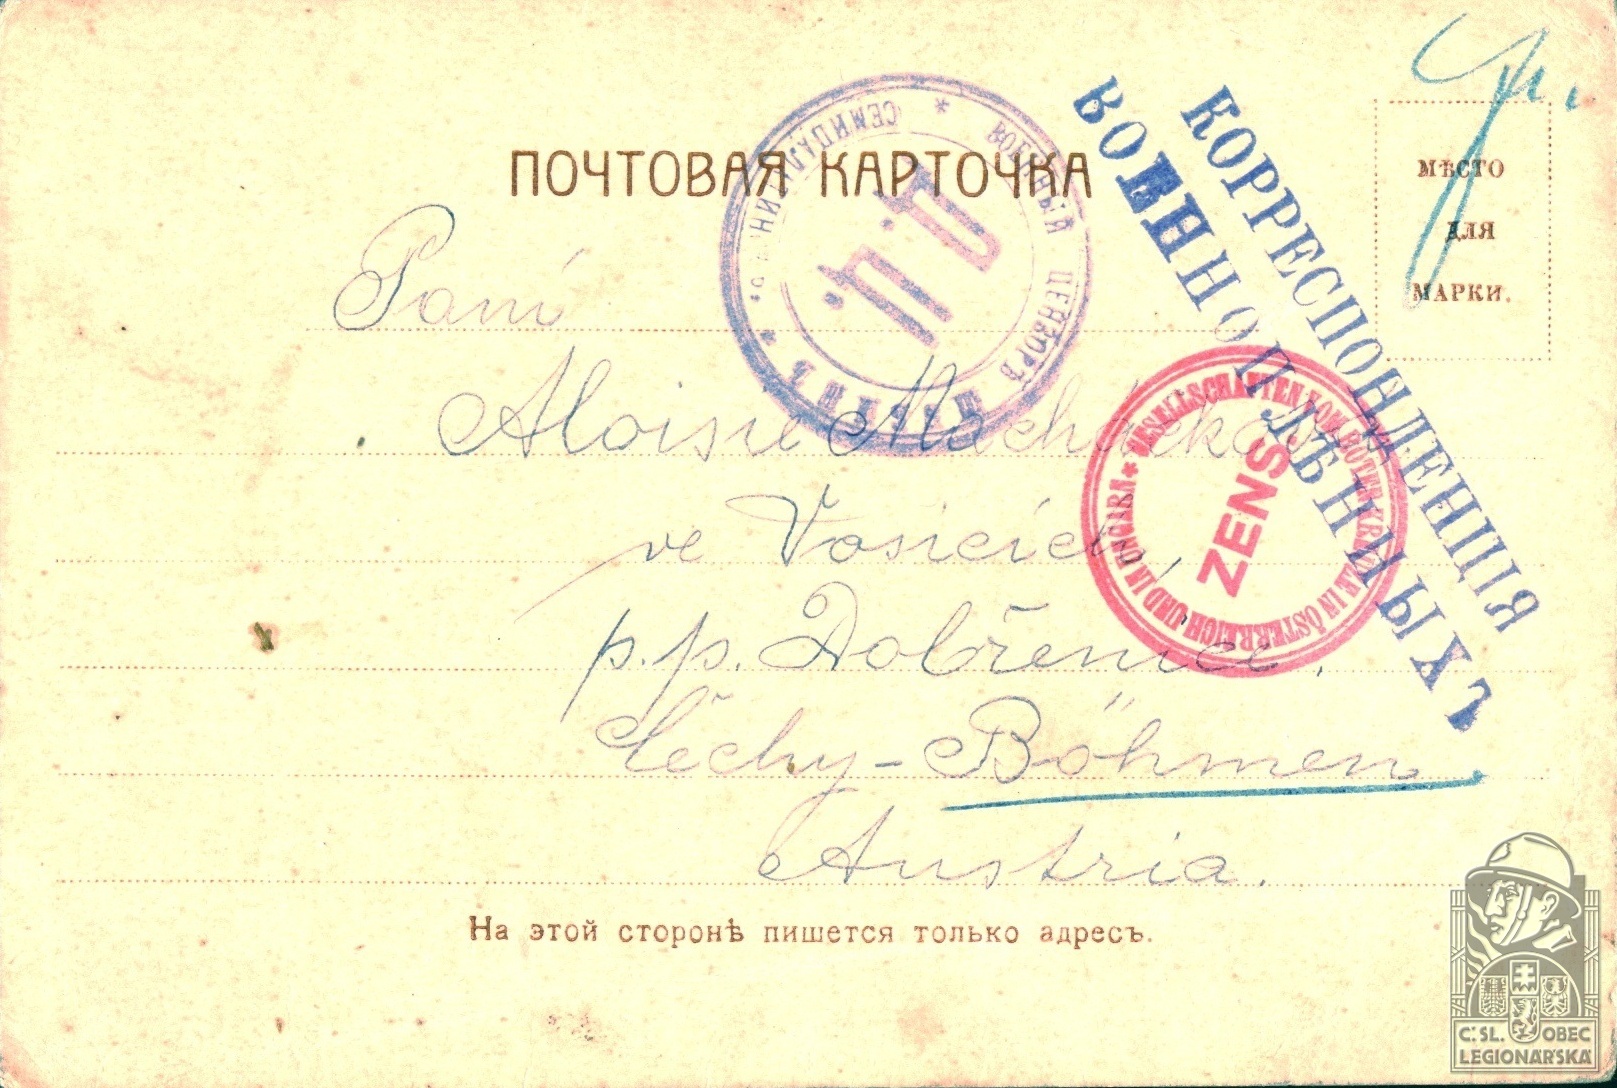 ПОЧТОВАЯ КАРТОЧКА
МѢСТО
ДЛЯ
МАРКИ.
КОРРЕСПОНДЕНЦІЯ
ВОЕННОПЛѢННЫХЪ
ВОЕННЫЙ ЦЕНЗОРЪ
П. П.
GESELLSCHAFTEN VOM ROTEN KREUZE IN ÖSTERREICH UND IN UNGARN *
ZENS
Paní
Aloisie Macháčková
ve Vosicích,
p. p. Dobřenice.
Čechy - Böhmen
Austria.
На этой сторонѣ пишется только адресъ.
Č. SL. OBEC
LEGIONÁŘSKÁ